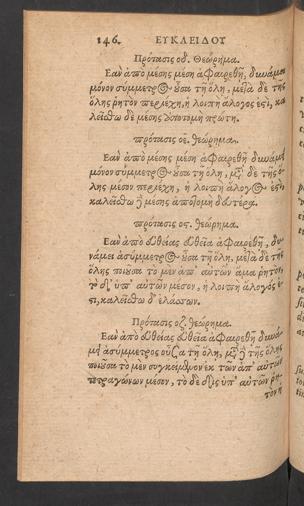 146. ΕΥΚΛΕΙΔΟΥ
Πρότασις οδ. Θεώρημα.
Εαν ἀπὸ μέσης μέση ἀφαιρεθῇ, δυνάμει
μόνον σύμμετρος οὖσα τῇ ὅλῃ, μετὰ δὲ τῆς
ὅλης ῥητὸν περιέχῃ, ἡ λοιπὴ ἄλογος ἐστι, κα
λείσθω δὲ μέσης ἀποτομὴ πρώτη.
πρότασις οε. θεώρημα.
Εαν ἀπὸ μέσης μέση ἀφαιρεθῇ δυνάμει
μόνον σύμμετρος οὖσα τῇ ὅλῃ, μετὰ δὲ τῆς ὅ-
λης μέσον περιέχῃ, ἡ λοιπὴ ἄλογος ἐστι,
καλείσθω δὲ μέσης ἀποτομὴ δευτέρα.
πρότασις ος. θεώρημα.
Εαν ἀπὸ εὐθείας εὐθεῖα ἀφαιρεθῇ, δυ-
νάμει ἀσύμμετρος οὖσα τῇ ὅλῃ. μετὰ δὲ τῆς
ὅλης ποιοῦσα τὸ μὲν ἀπ' αὐτῶν ἅμα ῥητον,
τὸ δ' ὑπ' αὐτῶν μέσον, ἡ λοιπὴ ἄλογός ἐ-
στι, καλείσθω δ' ἐλάσσων.
Πρότασις οζ. θεώρημα.
Εαν ἀπὸ εὐθείας εὐθεῖα ἀφαιρεθῇ δυνά-
μει ἀσύμμετρος οὖσα τῇ ὅλῃ, μετὰ δὲ τῆς ὅλης
ποιοῦσα τὸ μὲν συγκείμενον ἐκ τῶν ἀπ' αὐτῶν
τετραγώνων μέσον, τὸ δὲ δὶς ὑπ' αὐτῶν ῥη-
τὸν ἡ